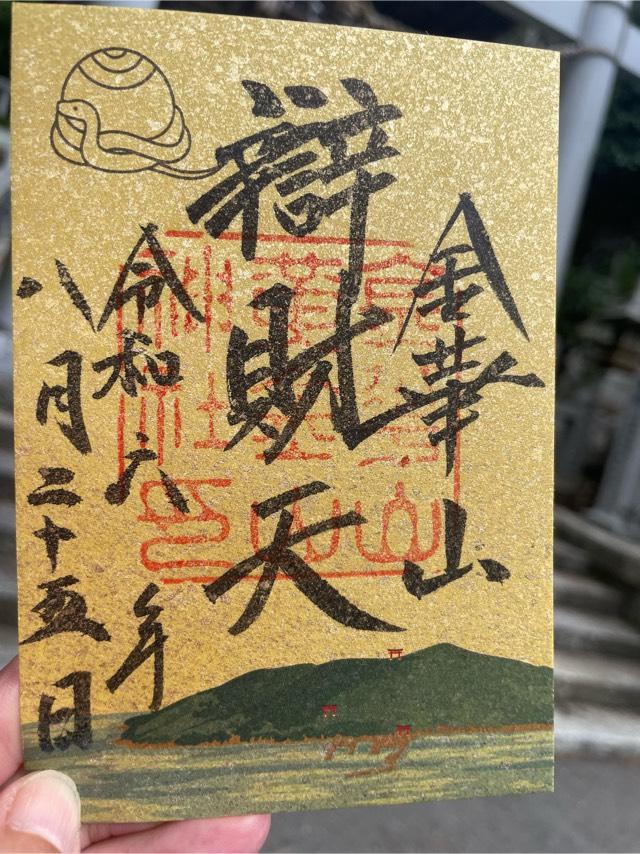 金華山
辯財天
令和六年
八月二十五日